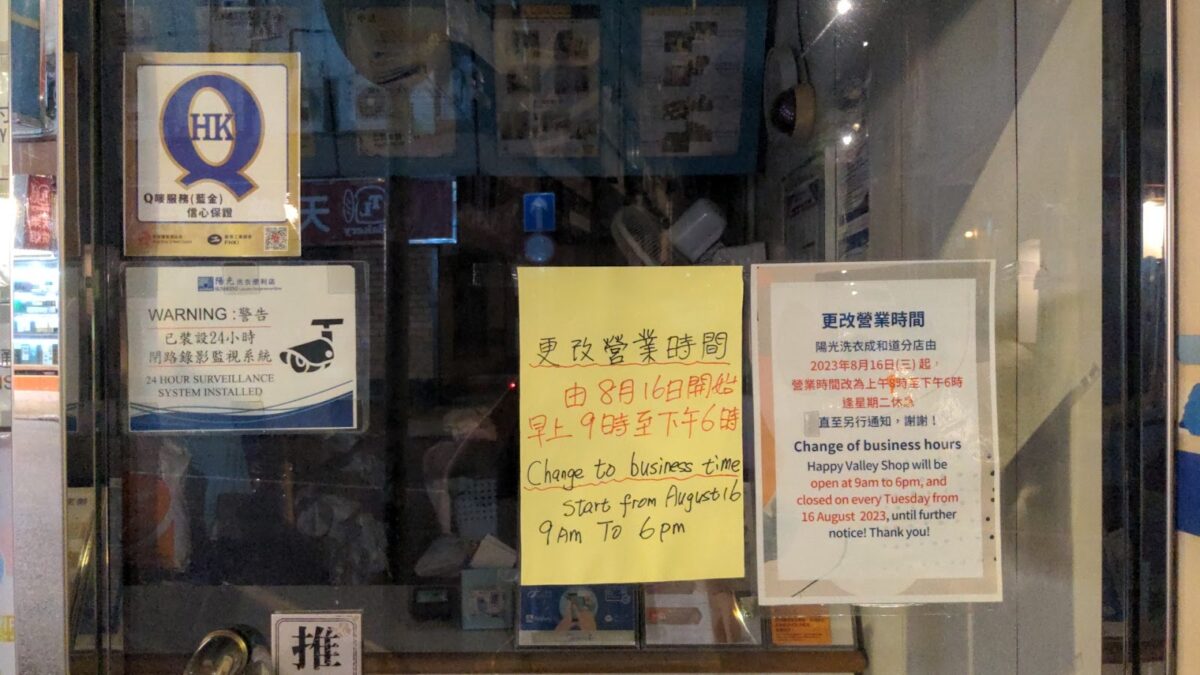 HK
Q嘜服務(藍金)
信心保證
FHKI
陽光洗衣便利店
WARNING : 警告
已裝設24小時
閉路錄影監視系統
24 HOUR SURVEILLANCE
SYSTEM INSTALLED
天
Bakery
更改營業時間
由8月16日開始
早上9時至下午6時
Change to business time
Start from August 16
9Am To 6pm
更改營業時間
陽光洗衣成和道分店由
2023年8月16日(三)起,
營業時間改為上午9時至下午6時
逢星期二休息
直至另行通知,謝謝!
Change of business hours
Happy Valley Shop will be
open at 9am to 6pm, and
closed on every Tuesday from
16 August 2023, until further
notice! Thank you!
推